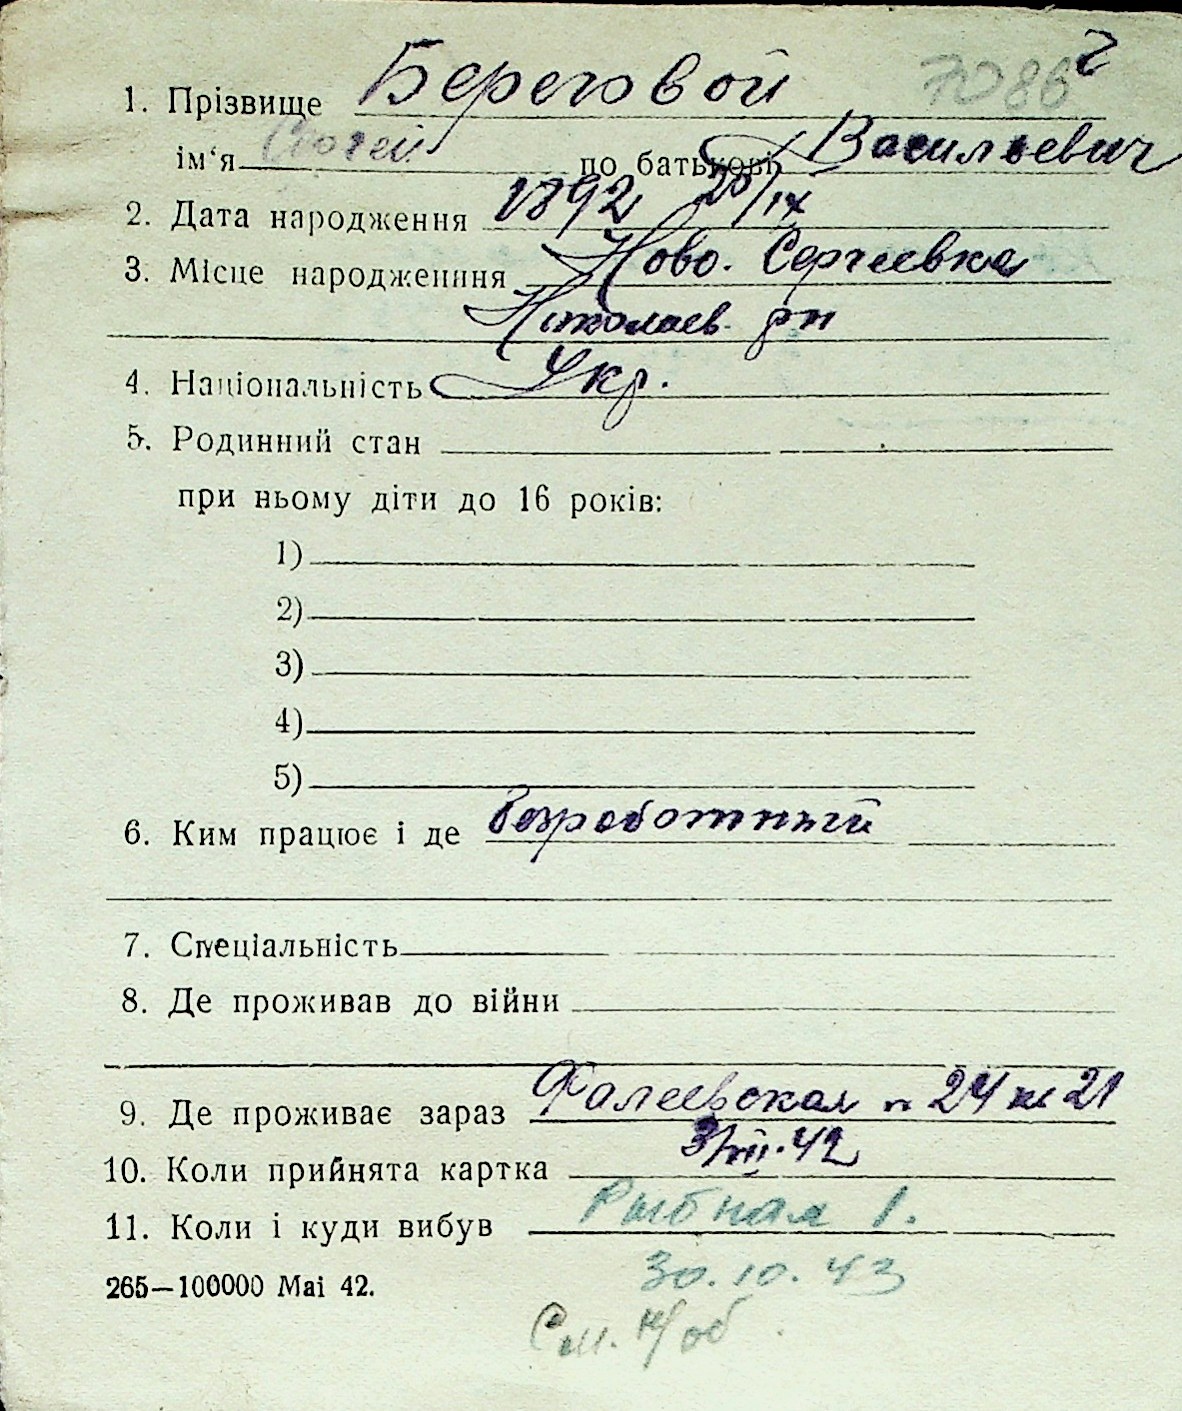 7086 2
1. Прізвище Береговой
ім‘я по батькові Васильевич
2. Дата народження 1892 20/IX
3. Місце народження Ново. Сергеевка
Николаев. рн
4. Національність Укр.
5. Родинний стан
при ньому діти до 16 років:
1)
2)
3)
4)
5)
6. Ким працює і де безработный
7. Спеціальність
8. Де проживав до війни
9. Де проживає зараз Фалеевская 24 21
10. Коли прийнята картка 3/VIII.42
11. Коли і куди вибув Рыбная 1.
30.10.43
265—100000 Mai 42.
См. н/об.